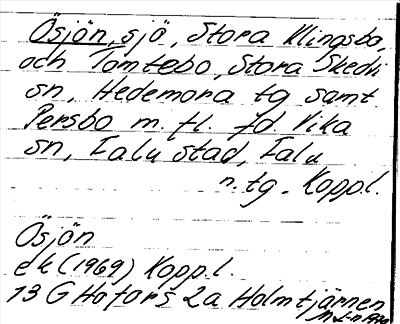 Ösjön, sjö, Stora Klingsbo,
och Tomtebo, Stora Skedvi
sn, Hedemora tg samt
Persbo m. fl. fd. Vika
sn, Falu stad, Falu
n. tg. Koppl.
Ösjön
ek (1969) Koppl.
13 G Hofors 2a Holmtjärnen